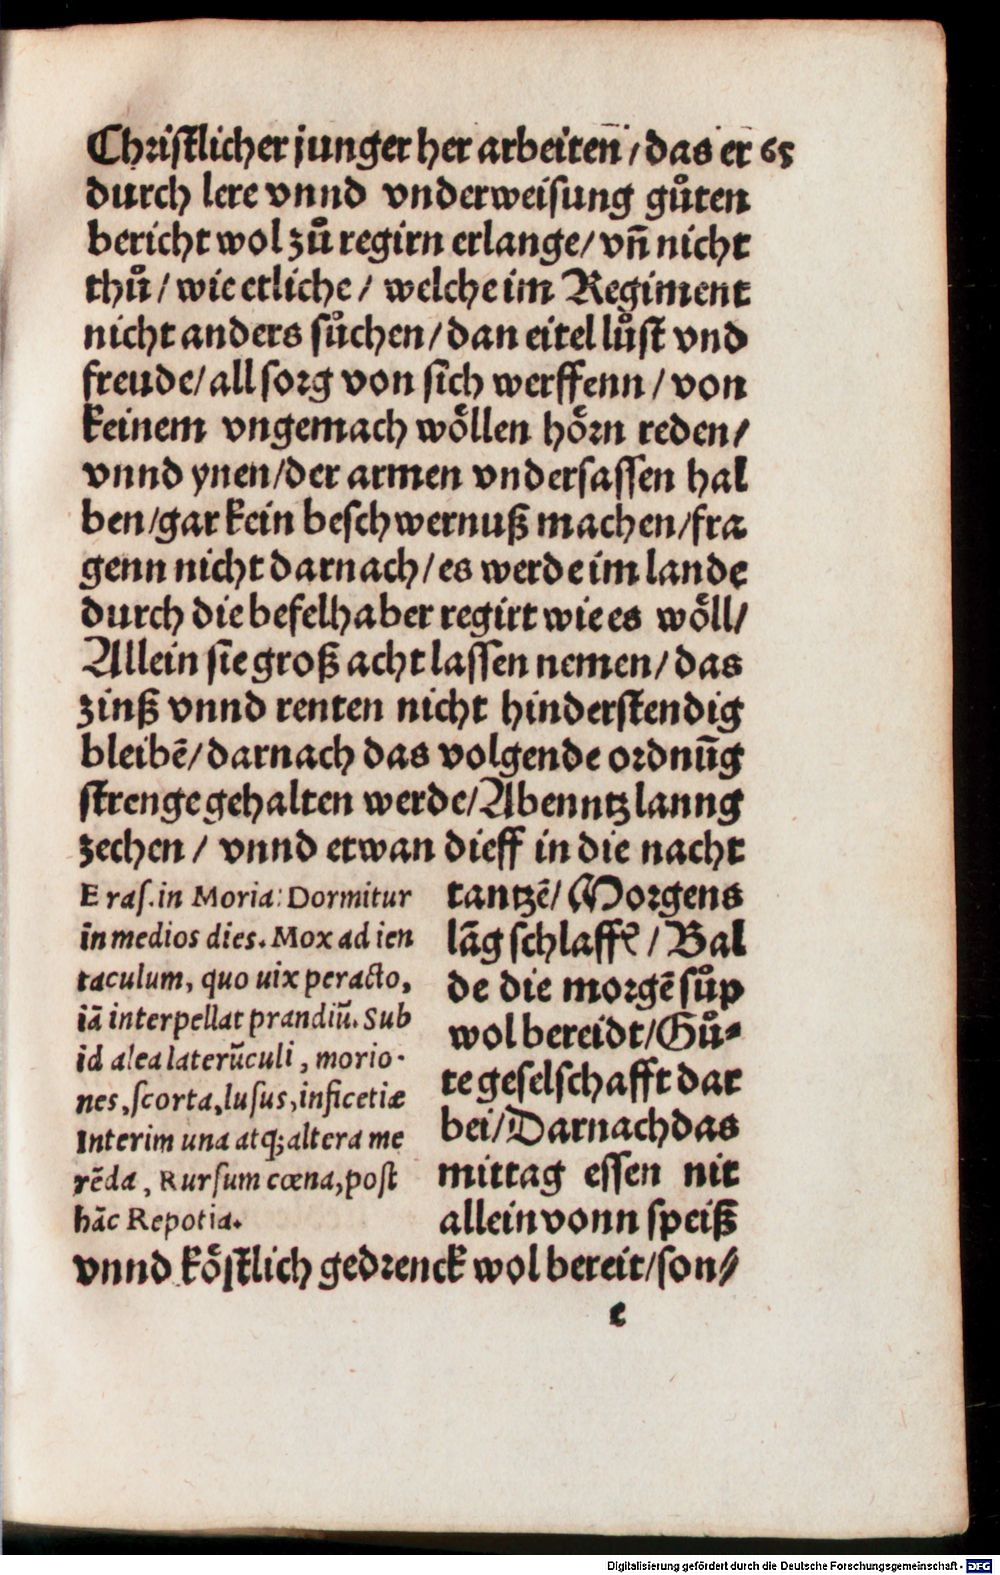 Christlicher junger her arbeiten̄ / das er̄ 65
durch lere vnnd vnderweisung gůten
bericht wol zů regirn erlange / vn̄ nicht
thů / wie etliche / welche im Regiment
nicht anders sůchen / dan eitel lůst vnd
freude / all sorg von sich werffenn / von
keinem vngemach wöllen hörn reden /
vnnd ynen / der armen vndersassen hal
ben / gar kein beschwernuß machen / fra
genn nicht darnach / es werde im lande
durch die befelhaber regirt wie es wöll /
Allein sie groß acht lassen nemen / das
zinß vnnd renten nicht hinderstendig
bleibē / darnach das volgende ordnūg
strenge gehalten werde / Abenntz lanng
zechen / vnnd etwan dieff in die nacht
tantzē / Morgens
lāg schlaffē / Bal
de die morgē sůp
wol bereidt / Gů-
te geselschafft dar
bei / Darnach das
mittag essen nit
allein vonn speiß
vnnd köstlich gedrenck wol bereit / son⸗
Eras. in Moria: Dormitur
in medios dies. Mox ad ien
taculum, quo uix peracto,
iā interpellat prandiū. Sub
id alea laterūculi, morio-
nes, scorta, lusus, inficetiæ
Interim una atq; altera me
rēda, Rursum cœna, post
hāc Repotia.
e
Digitalisierung gefördert durch die Deutsche Forschungsgemeinschaft - DFG